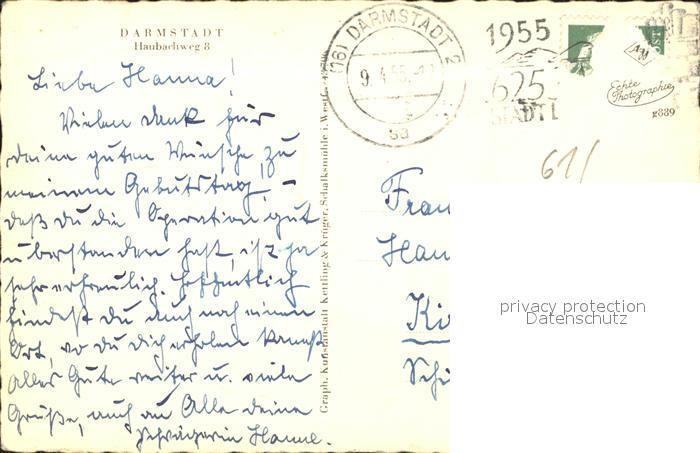 DARMSTADT
Haubachweg 8
Liebe Hanna!
Vielen Dank für
deine guten Wünsche zu
meinem Geburtstag, –
daß du die Operation gut
überstanden hast, ist ja
sehr erfreulich. Hoffentlich
findest du auch noch einen
Ort, wo du dich erholen kannst
Alles Gute weiter u. viele
Grüße, auch an Alle deine
Schwägerin Hanne.
Graph. Kunstanstalt Kettling & Krüger, Schalksmühle i. Westf.
(16) DARMSTADT 2
9.4.55
sa
1955
625
STADT
Echte
Photographie
g889
61/
Frau
Han
Ki
Schi
privacy protection
Datenschutz